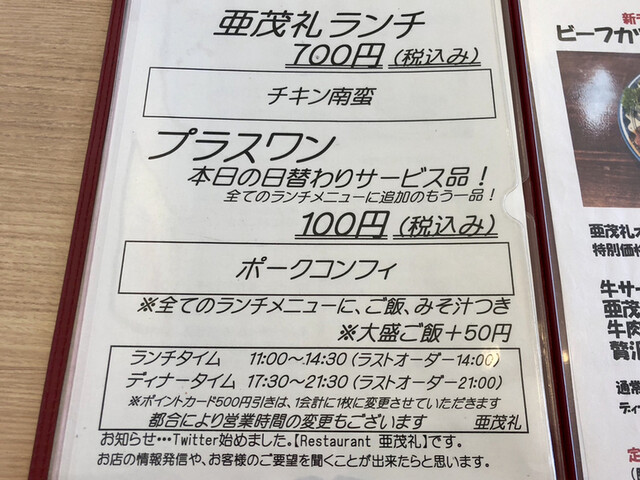 亜茂礼ランチ
700円(税込み)
チキン南蛮
プラスワン
本日の日替わりサービス品！
全てのランチメニューに追加のもう一品！
100円(税込み)
ポークコンフィ
※全てのランチメニューに、ご飯、みそ汁つき
※大盛ご飯＋50円
ランチタイム 11:00～14:30(ラストオーダー14:00)
ディナータイム 17:30～21:30(ラストオーダー21:00)
※ポイントカード500円引きは、1会計に1枚に変更させていただきます
都合により営業時間の変更もございます 亜茂礼
お知らせ…Twitter始めました。【Restaurant 亜茂礼】です。
お店の情報発信や、お客様のご要望を聞くことが出来たらと思います。
ビーフカツ
亜茂礼
特別価格
牛サー
亜茂
牛肉
贅沢
通常
ディ